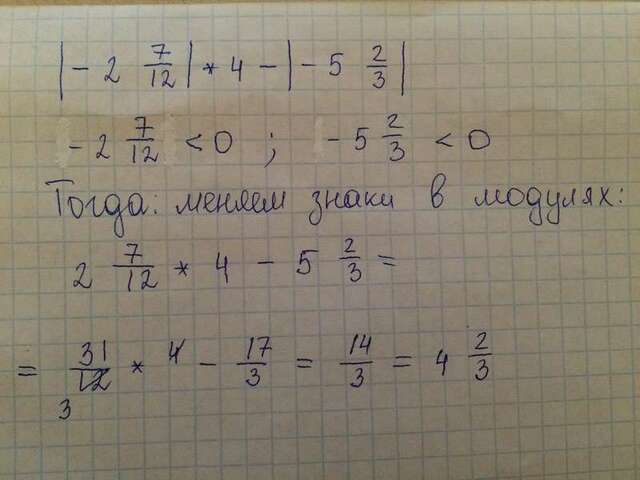 |- 2 7/12| * 4 - |- 5 2/3|
- 2 7/12 < 0 ; - 5 2/3 < 0
Тогда: меняем знаки в модулях:
2 7/12 * 4 - 5 2/3 =
= 31/12 3 * 4 - 17/3 = 14/3 = 4 2/3